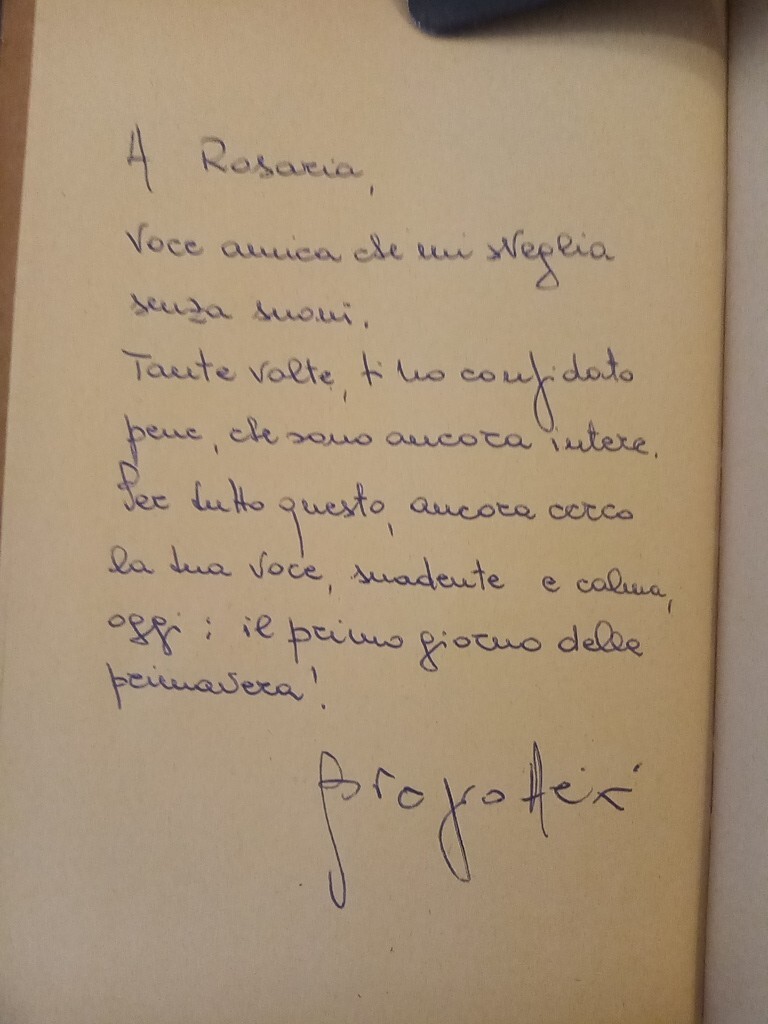 A Rosaria,
Voce amica che mi sveglia
senza suoni.
Tante volte, ti ho confidato
pene, che sono ancora intere.
Per tutto questo, ancora cerco
la tua voce, suadente e calma,
oggi: il primo giorno della
primavera!